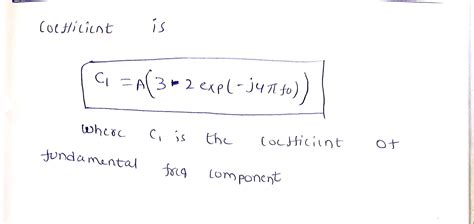 coefficient is
C₁ = A(3 - 2 exp(-j4πfo))
where C₁ is the coefficient of
fundamental freq component